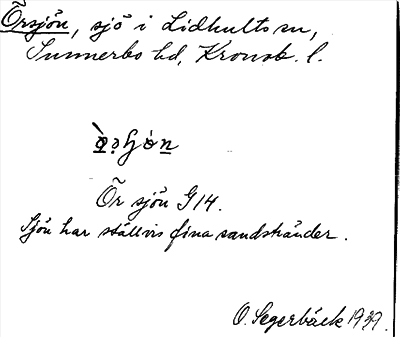 Örsjön, sjö i Lidhults sn,
Sunnerbo hd, Kronob. l.
Ör sjön G14.
Sjön har ställvis fina sandstränder.
O. Segerbäck 1939.